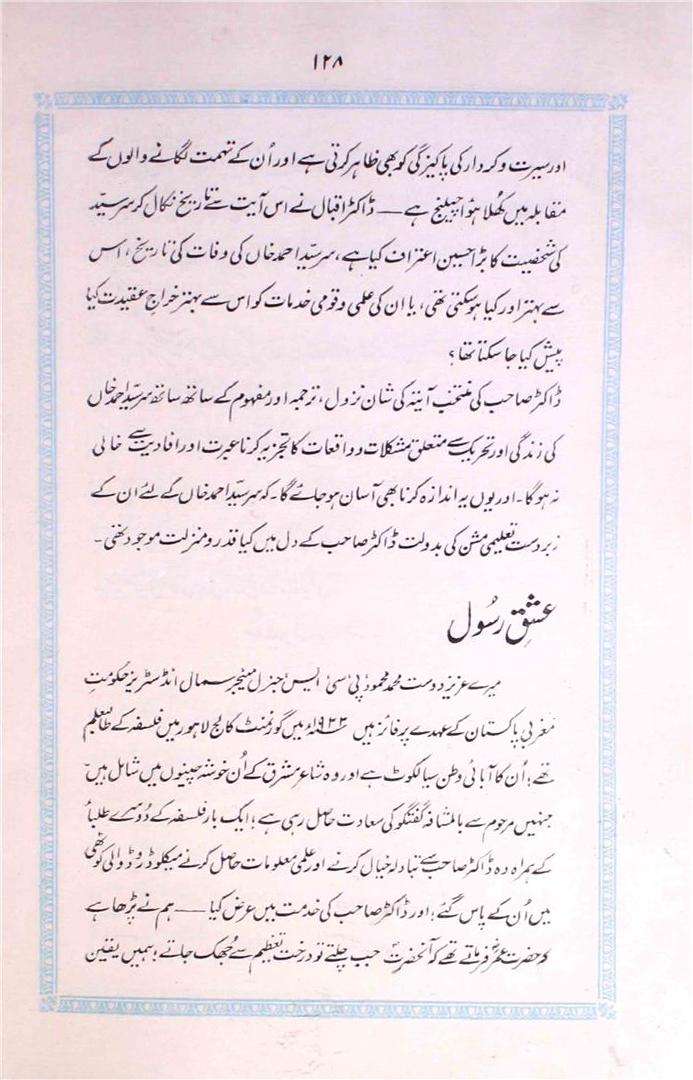 ۱۲۸
اور سیرت و کردار کی پاکیزگی کو بھی ظاہر کرتی ہے اور اُن کے تہمت لگانے والوں کے
مقابلہ میں کُھلا ہوا چیلنج ہے — ڈاکٹر اقبال نے اس آیت سے تاریخ نکال کر سرسیّد
کی شخصیت کا بڑا حسین اعتراف کیا ہے، سرسیّد احمد خاں کی وفات کی تاریخ، اس
سے بہتر اور کیا ہو سکتی تھی، یا ان کی علمی و قومی خدمات کو اس سے بہتر خراجِ عقیدت کیا
پیش کیا جا سکتا تھا؟
ڈاکٹر صاحب کی منتخب آیتہ کی شان نزول، ترجمہ اور مفہوم کے ساتھ ساتھ سرسیّد احمد خاں
کی زندگی اور تحریک سے متعلق مشکلات و واقعات کا تجزیہ کرنا عبرت اور افادیت سے خالی
نہ ہوگا۔ اور یوں یہ اندازہ کرنا بھی آسان ہو جائے گا۔ کہ سرسیّد احمد خاں کے لئے ان کے
زبردست تعلیمی مشن کی بدولت ڈاکٹر صاحب کے دل میں کیا قدر و منزلت موجود تھی۔
عشقِ رسُول
میرے عزیز دوست محمد محمود پی سی ایس جنرل منیجر سمال انڈسٹریز حکومتِ
مغربی پاکستان کے عہدے پر فائز ہیں ۱۹۲۳ء میں گورنمنٹ کالج لاہور میں فلسفہ کے طالبعلم
تھے؛ اُن کا آبائی وطن سیالکوٹ ہے اور وہ شاعرِ مشرق کے اُن خوشہ چینوں میں شامل ہیں
جنہیں مرحوم سے بالمشافہ گفتگو کی سعادت حاصل رہی ہے؛ ایک بار فلسفہ کے دُوسرے طلباء
کے ہمراہ وہ ڈاکٹر صاحب سے تبادلہ خیال کرنے اور علمی معلومات حاصل کرنے میکلوڈ روڈ والی کوٹھی
میں اُن کے پاس گئے؛ اور ڈاکٹر صاحب کی خدمت میں عرض کیا — ہم نے پڑھا ہے
کہ حضرت عمرؓ فرماتے تھے کہ آنحضرتؐ جب چلتے تو درخت تعظیم سے جُھک جاتے؛ ہمیں یقین